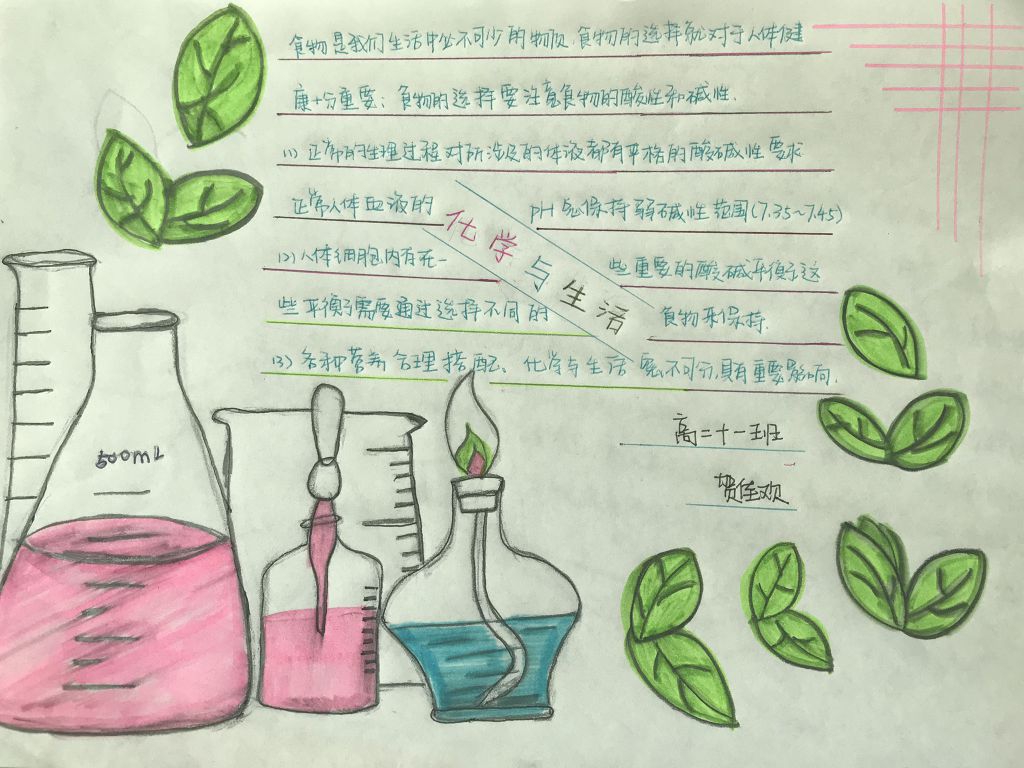 食物是我们生活中必不可少的物质.食物的选择就对于人体健
康十分重要;食物的选择要注意食物的酸性和碱性.
(1)正常的生理过程对所涉及的体液都有平格的酸碱性要求
正常人体血液的 pH 总保持弱碱性范围(7.35~7.45)
(2)人体细胞内存在一 些重要的酸碱平衡了这
些平衡了需要通过选择不同的 食物来保持.
(3)各种营养合理搭配、化学与生活 密不可分,具有重要影响.
化学与生活
高二十一班
欢
500mL